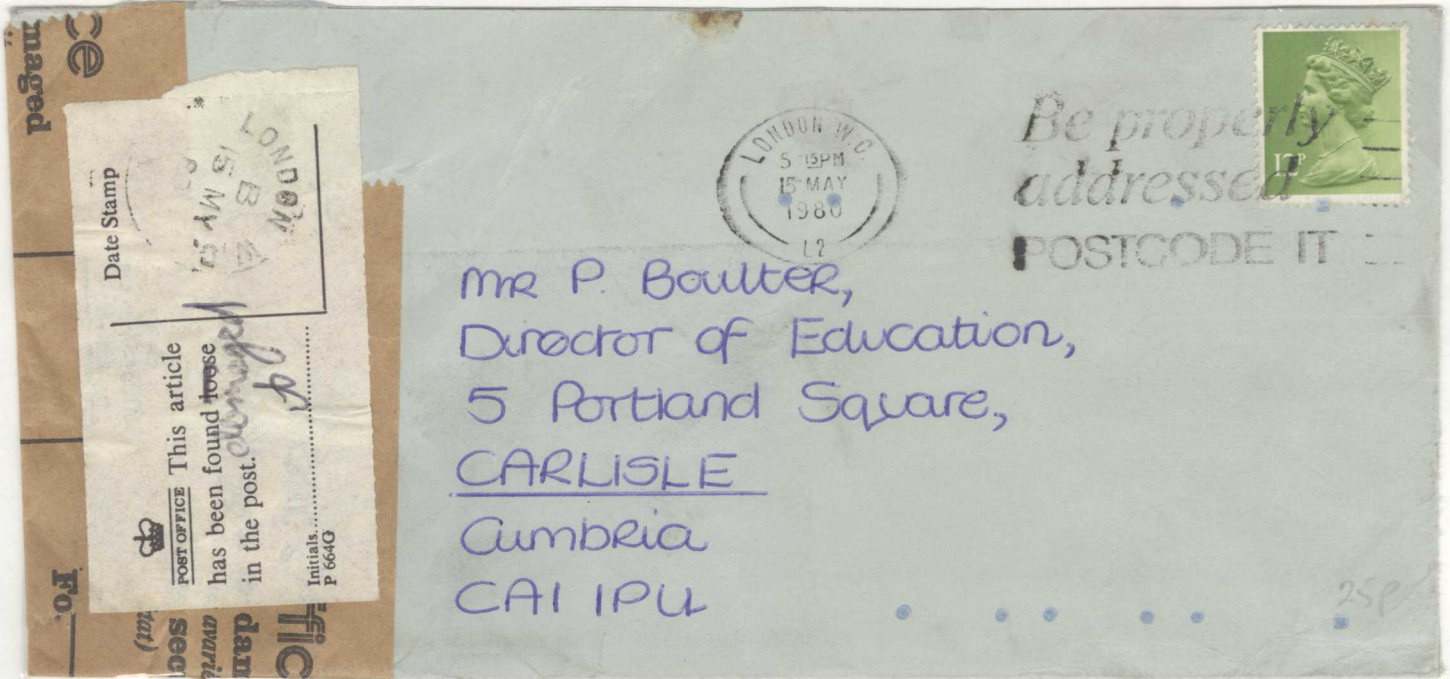 ce
maged
Date Stamp
LONDON W
B
15 MY
POST OFFICE This article
has been found loose
damaged
in the post.
Initials
P 664G
To
tat)
sec
avarie
dam
ffic
LONDON W.C.
5 15PM
15 MAY
1980
L2
Be properly
addressed
POSTCODE IT
12P
Mr P. Boulter,
Director of Education,
5 Portland Square,
CARLISLE
Cumbria
CA1 1PU
25p